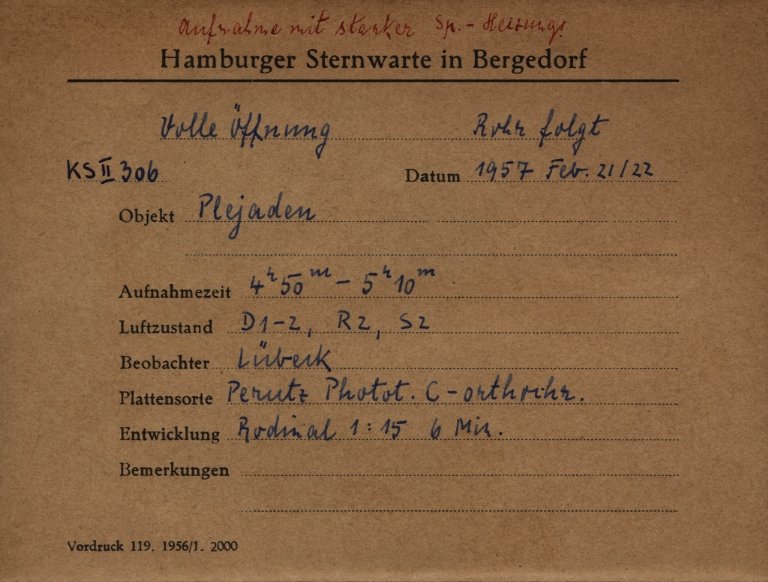 Aufnahme mit starker Sp.-Heizung!
Hamburger Sternwarte in Bergedorf
Volle Öffnung Rohr folgt
KS II 306 Datum 1957 Feb. 21/22
Objekt Plejaden
Aufnahmezeit 4h 50m - 5h 10m
Luftzustand D1-2, R2, S2
Beobachter Lübeck
Plattensorte Perutz Photot. C-orthochr.
Entwicklung Rodinal 1:15 6 Min.
Bemerkungen
Vordruck 119. 1956/1. 2000